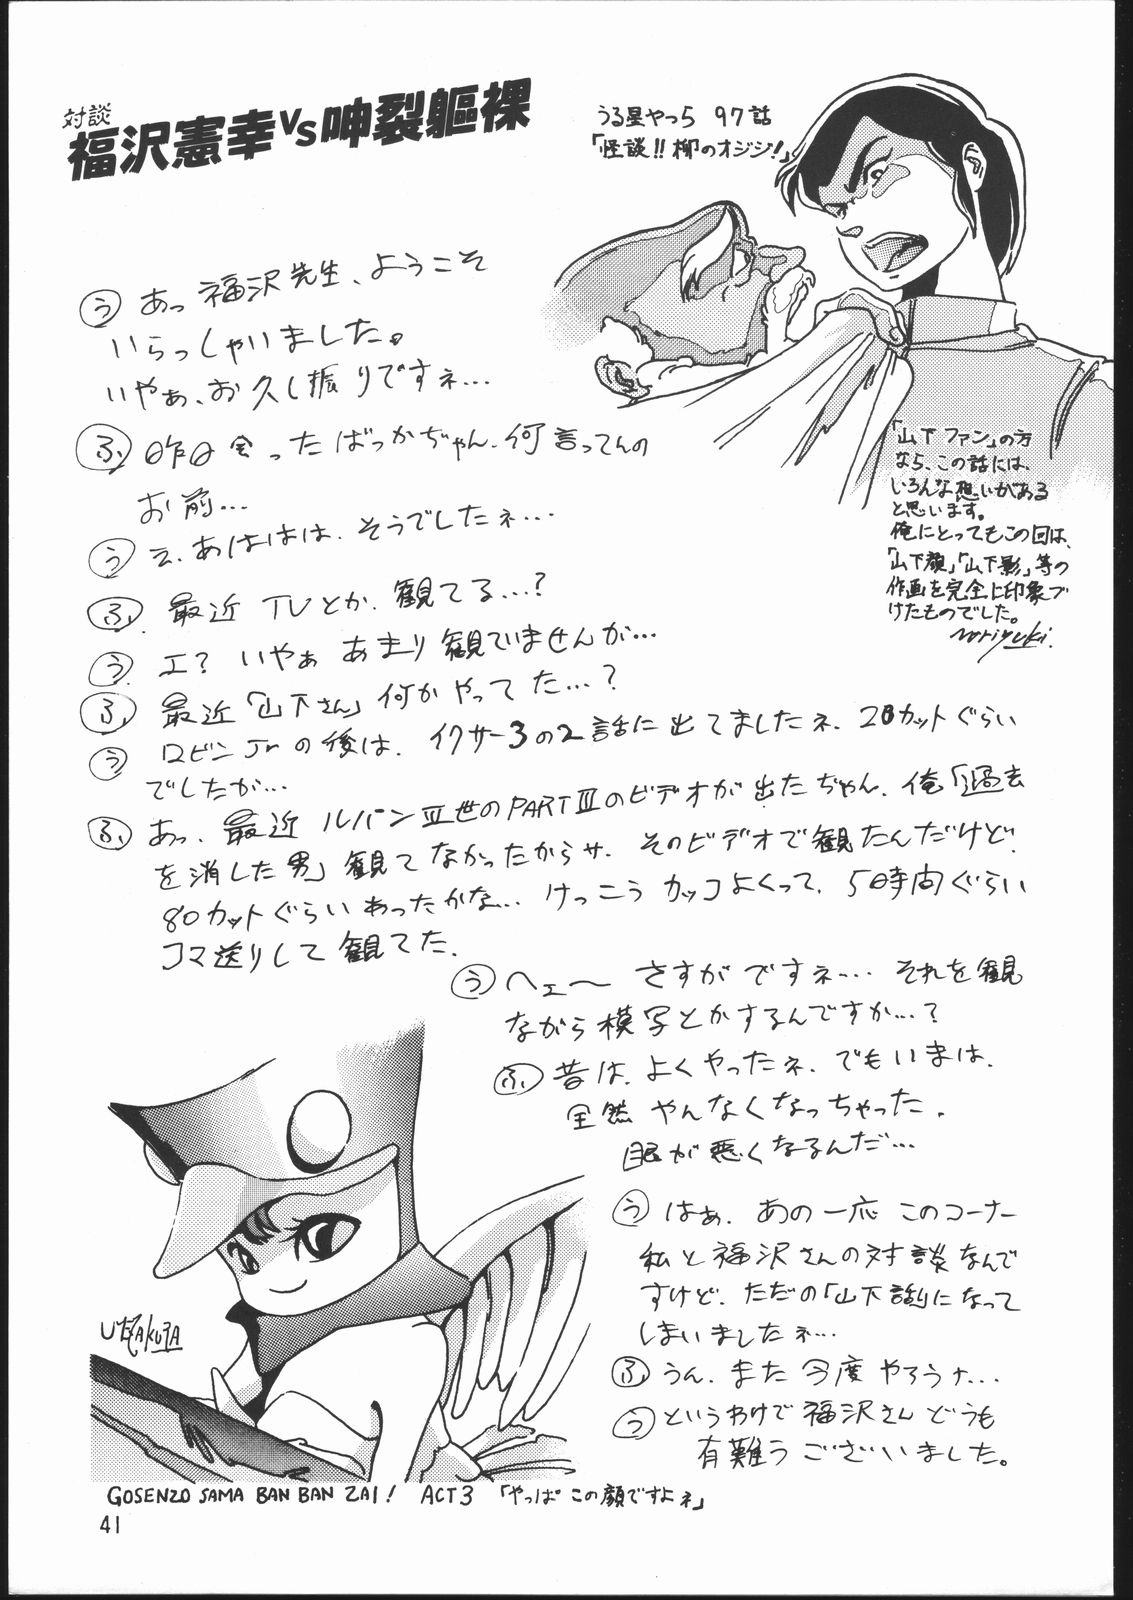 対談
福沢憲幸VS呻裂軀裸
うる星やつら 97話
「怪談!!柳のオジジ!」
う あっ福沢先生、ようこそ
いらっしゃいました。
いやぁ、お久し振りですネ…
ふ 昨日会ったばっかぢゃん、何言ってんの
お前…
う え、あははは、そうでしたネ…
ふ 最近TVとか、観てる…?
う エ? いやぁ あまり観ていませんが…
ふ 最近「山下さん」何かやってた…?
う ロビンJrの後は、イクサー3の2話に出てましたネ、20カットぐらい
でしたが…
ふ あっ、最近ルパンⅢ世のPARTⅢのビデオが出たぢゃん、俺「過去
を消した男」観てなかったからサ、そのビデオで観たんだけど、
80カットぐらいあったかな… けっこうカッコよくって、5時間ぐらい
コマ送りして観てた。
う ヘェ〜 さすがですネ… それを観
ながら模写とかするんですか…?
ふ 昔は、よくやったネ、でもいまは、
全然やんなくなっちゃった。
眼が悪くなるんだ…
う はぁ、あの一応このコーナー
私と福沢さんの対談なんで
すけど、ただの「山下談」になって
しまいましたネ…
ふ うん、また今度やろうナ…
う というわけで福沢さんどうも
有難うございました。
「山下ファン」の方
なら、この話には、
いろんな想いがある
と思います。
俺にとってもこの回は、
「山下顔」「山下影」等の
作画を完全に印象づ
けたものでした。
Noriyuki.
GOSENZO SAMA BAN BAN ZAI! ACT3 「やっぱこの顔ですよネ」
41